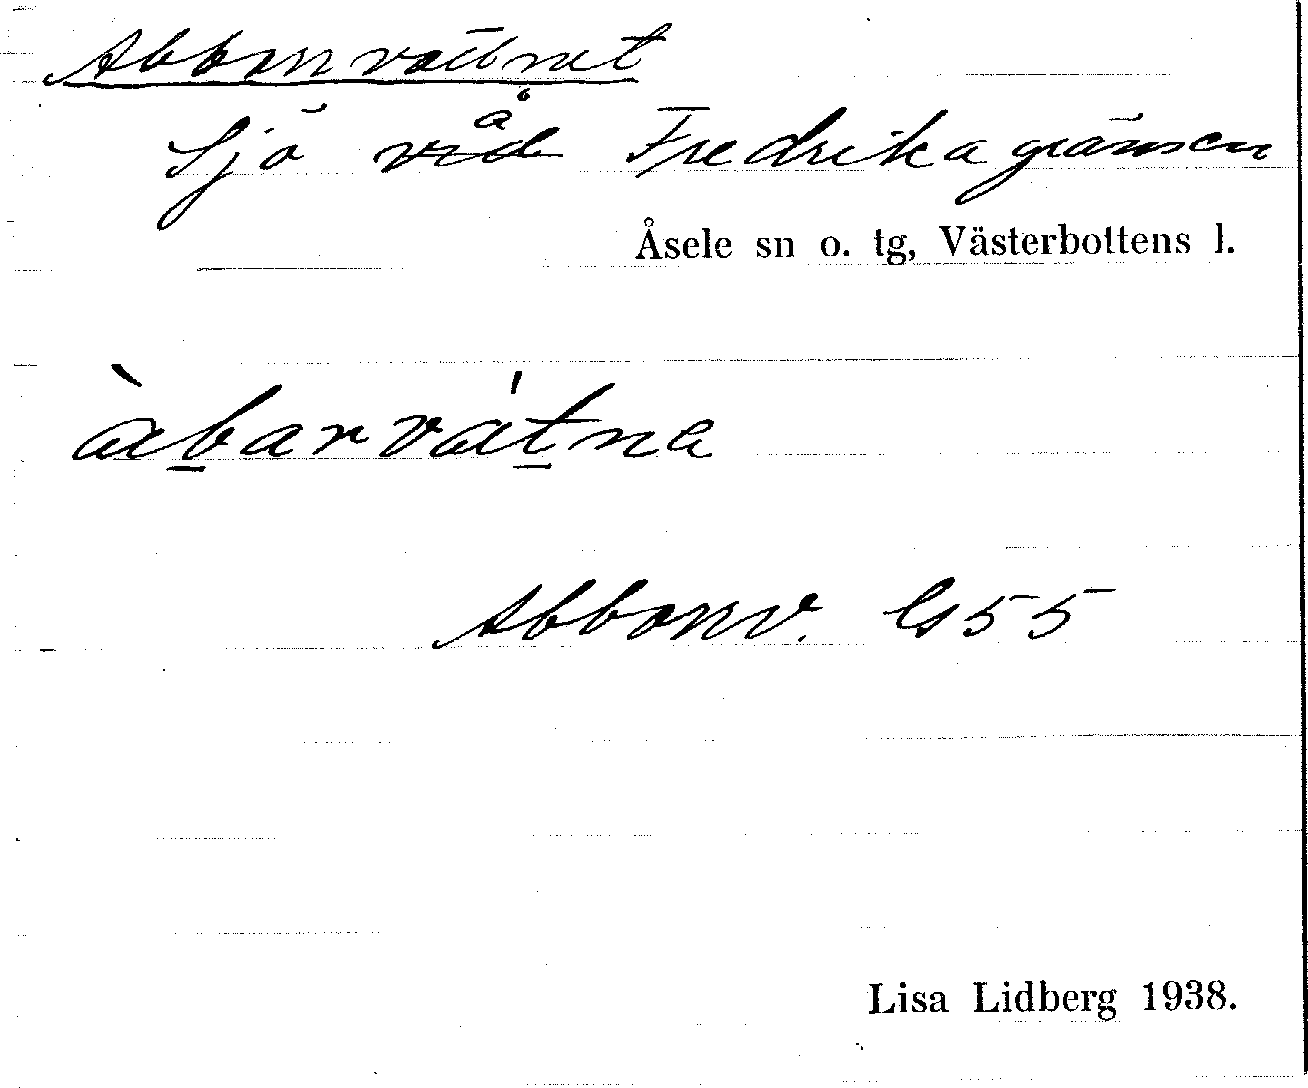 Abborrvattnet
Sjö å Fredrikagränsen
Åsele sn o. tg, Västerbottens l.
àbarvátna
Abborrv. Gs 55
Lisa Lidberg 1938.